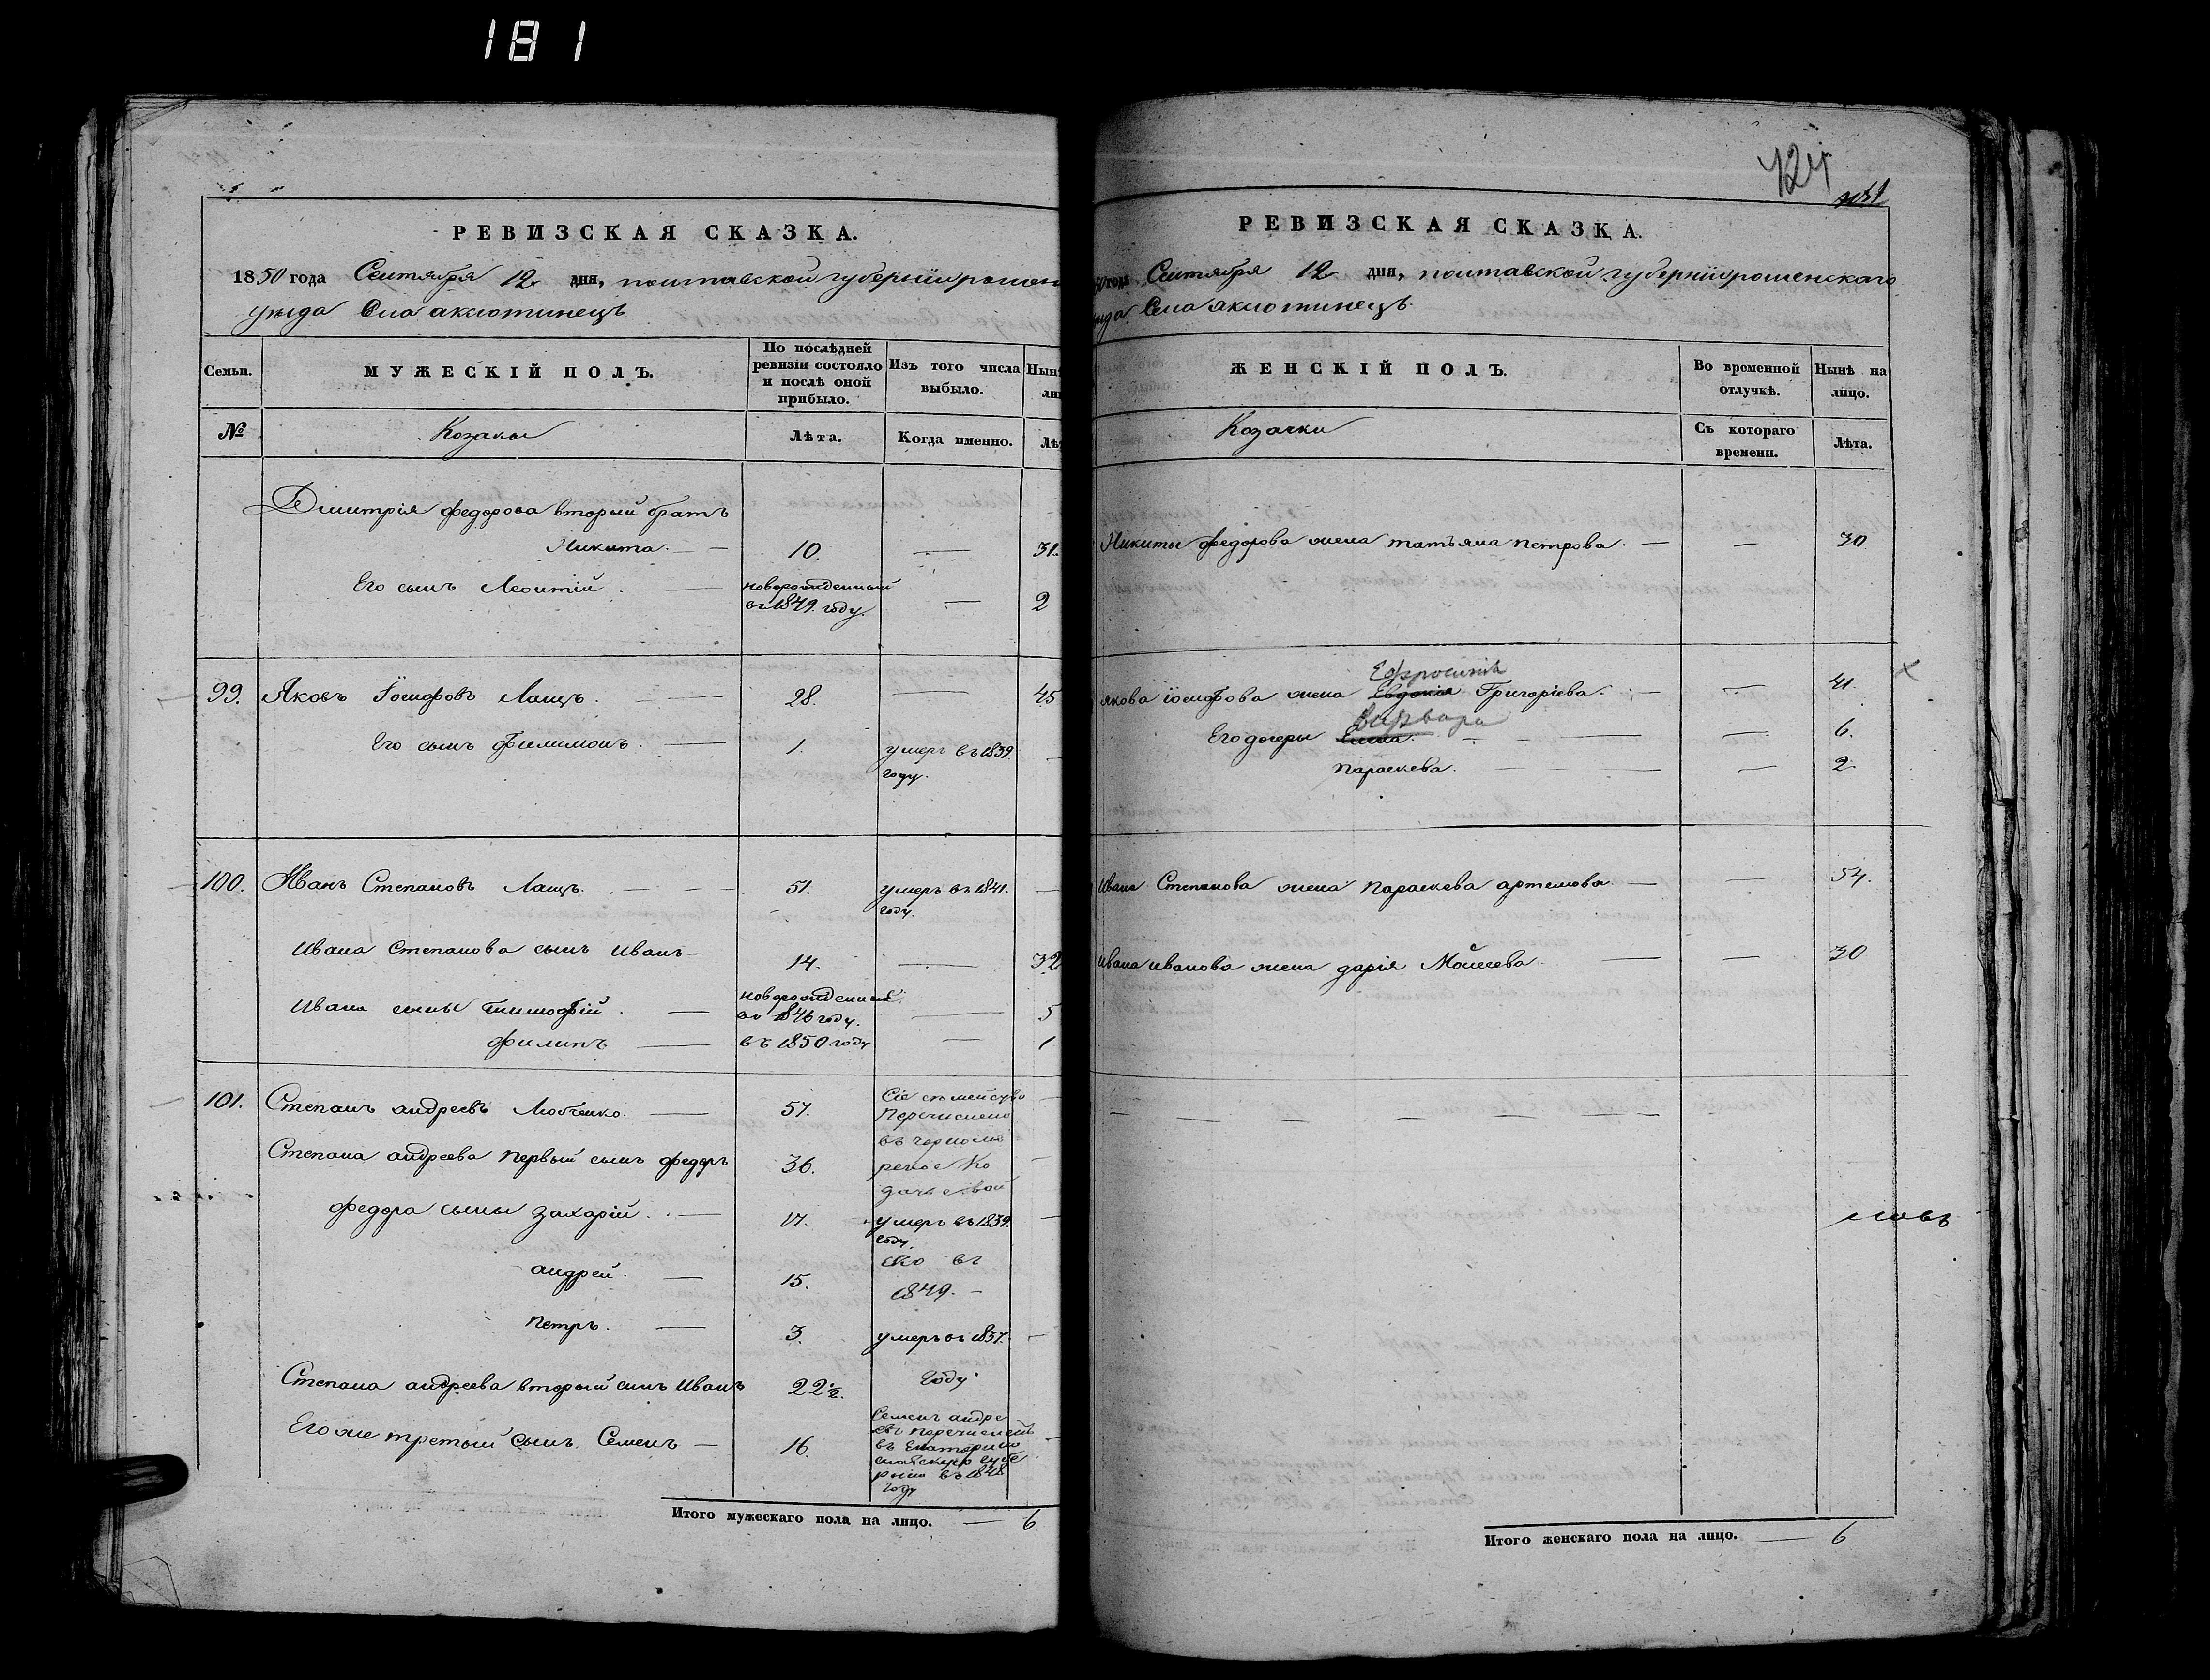 181
РЕВИЗСКАЯ СКАЗКА.
1850 года Сентября 12 дня, полтавской губерніи роменс
уѣзда Села аксютинецъ
Семьи.
МУЖЕСКІЙ ПОЛЪ.
По послѣдней
ревизіи состояло
и послѣ оной
прибыло.
Изъ того числа
выбыло.
Нынѣ
лиц
№
Козаки
Лѣта.
Когда именно.
Лѣт
Димитрія федорова вторый братъ
Никита. 10. 31.
Его сынъ Леонтій. новорожденный
въ 1849. году. 2
99. Яковъ Іосифовъ Лащъ. 28. 45
Его сынъ Филимонъ. 1. умеръ въ 1839.
году.
100. Иванъ Степановъ Лащъ. 51. умеръ въ 1841.
году.
Ивана Степанова сынъ Иванъ 14. 32
Ивана сыны тимофій. новорожденный
1846 году. 5
филипъ въ 1850 году 1
101. Степанъ андреевъ Любченко. 57. Сіе семейство
перечислено
въ черномо
Степана андреева первый сынъ федоръ 36. рское ко
зачье вой
федора сыны захарій. 17. умеръ въ 1839.
году.
ско въ
андрей. 15. 1849.
петръ. 3. умеръ въ 1837.
году
Степана андреева вторый сынъ Иванъ 22 1/2.
Семенъ андре
евъ перечисленъ
Его же третый сынъ Семенъ 16. въ Екатерино
славскую губе
рнію въ 1848
году
Итого мужескаго пола на лицо. 6
424
РЕВИЗСКАЯ СКАЗКА.
50 года Сентября 12 дня, полтавской губерніи роменскаго
ѣзда Села аксютинецъ.
ЖЕНСКІЙ ПОЛЪ.
Во временной
отлучкѣ.
Нынѣ на
лицо.
Козачки
Съ котораго
времени.
Лѣта.
Никиты федорова жена татьяна петрова. 30
Ефросинія
якова іосифова жена Евдокія Григоріева. 41.
Варвара
Его дочеры Елена. 6.
параскева. 2.
Ивана Степанова жена параскева артемова 54.
Ивана иванова жена дарія Моисеева 30
Итого женскаго пола на лицо. 6